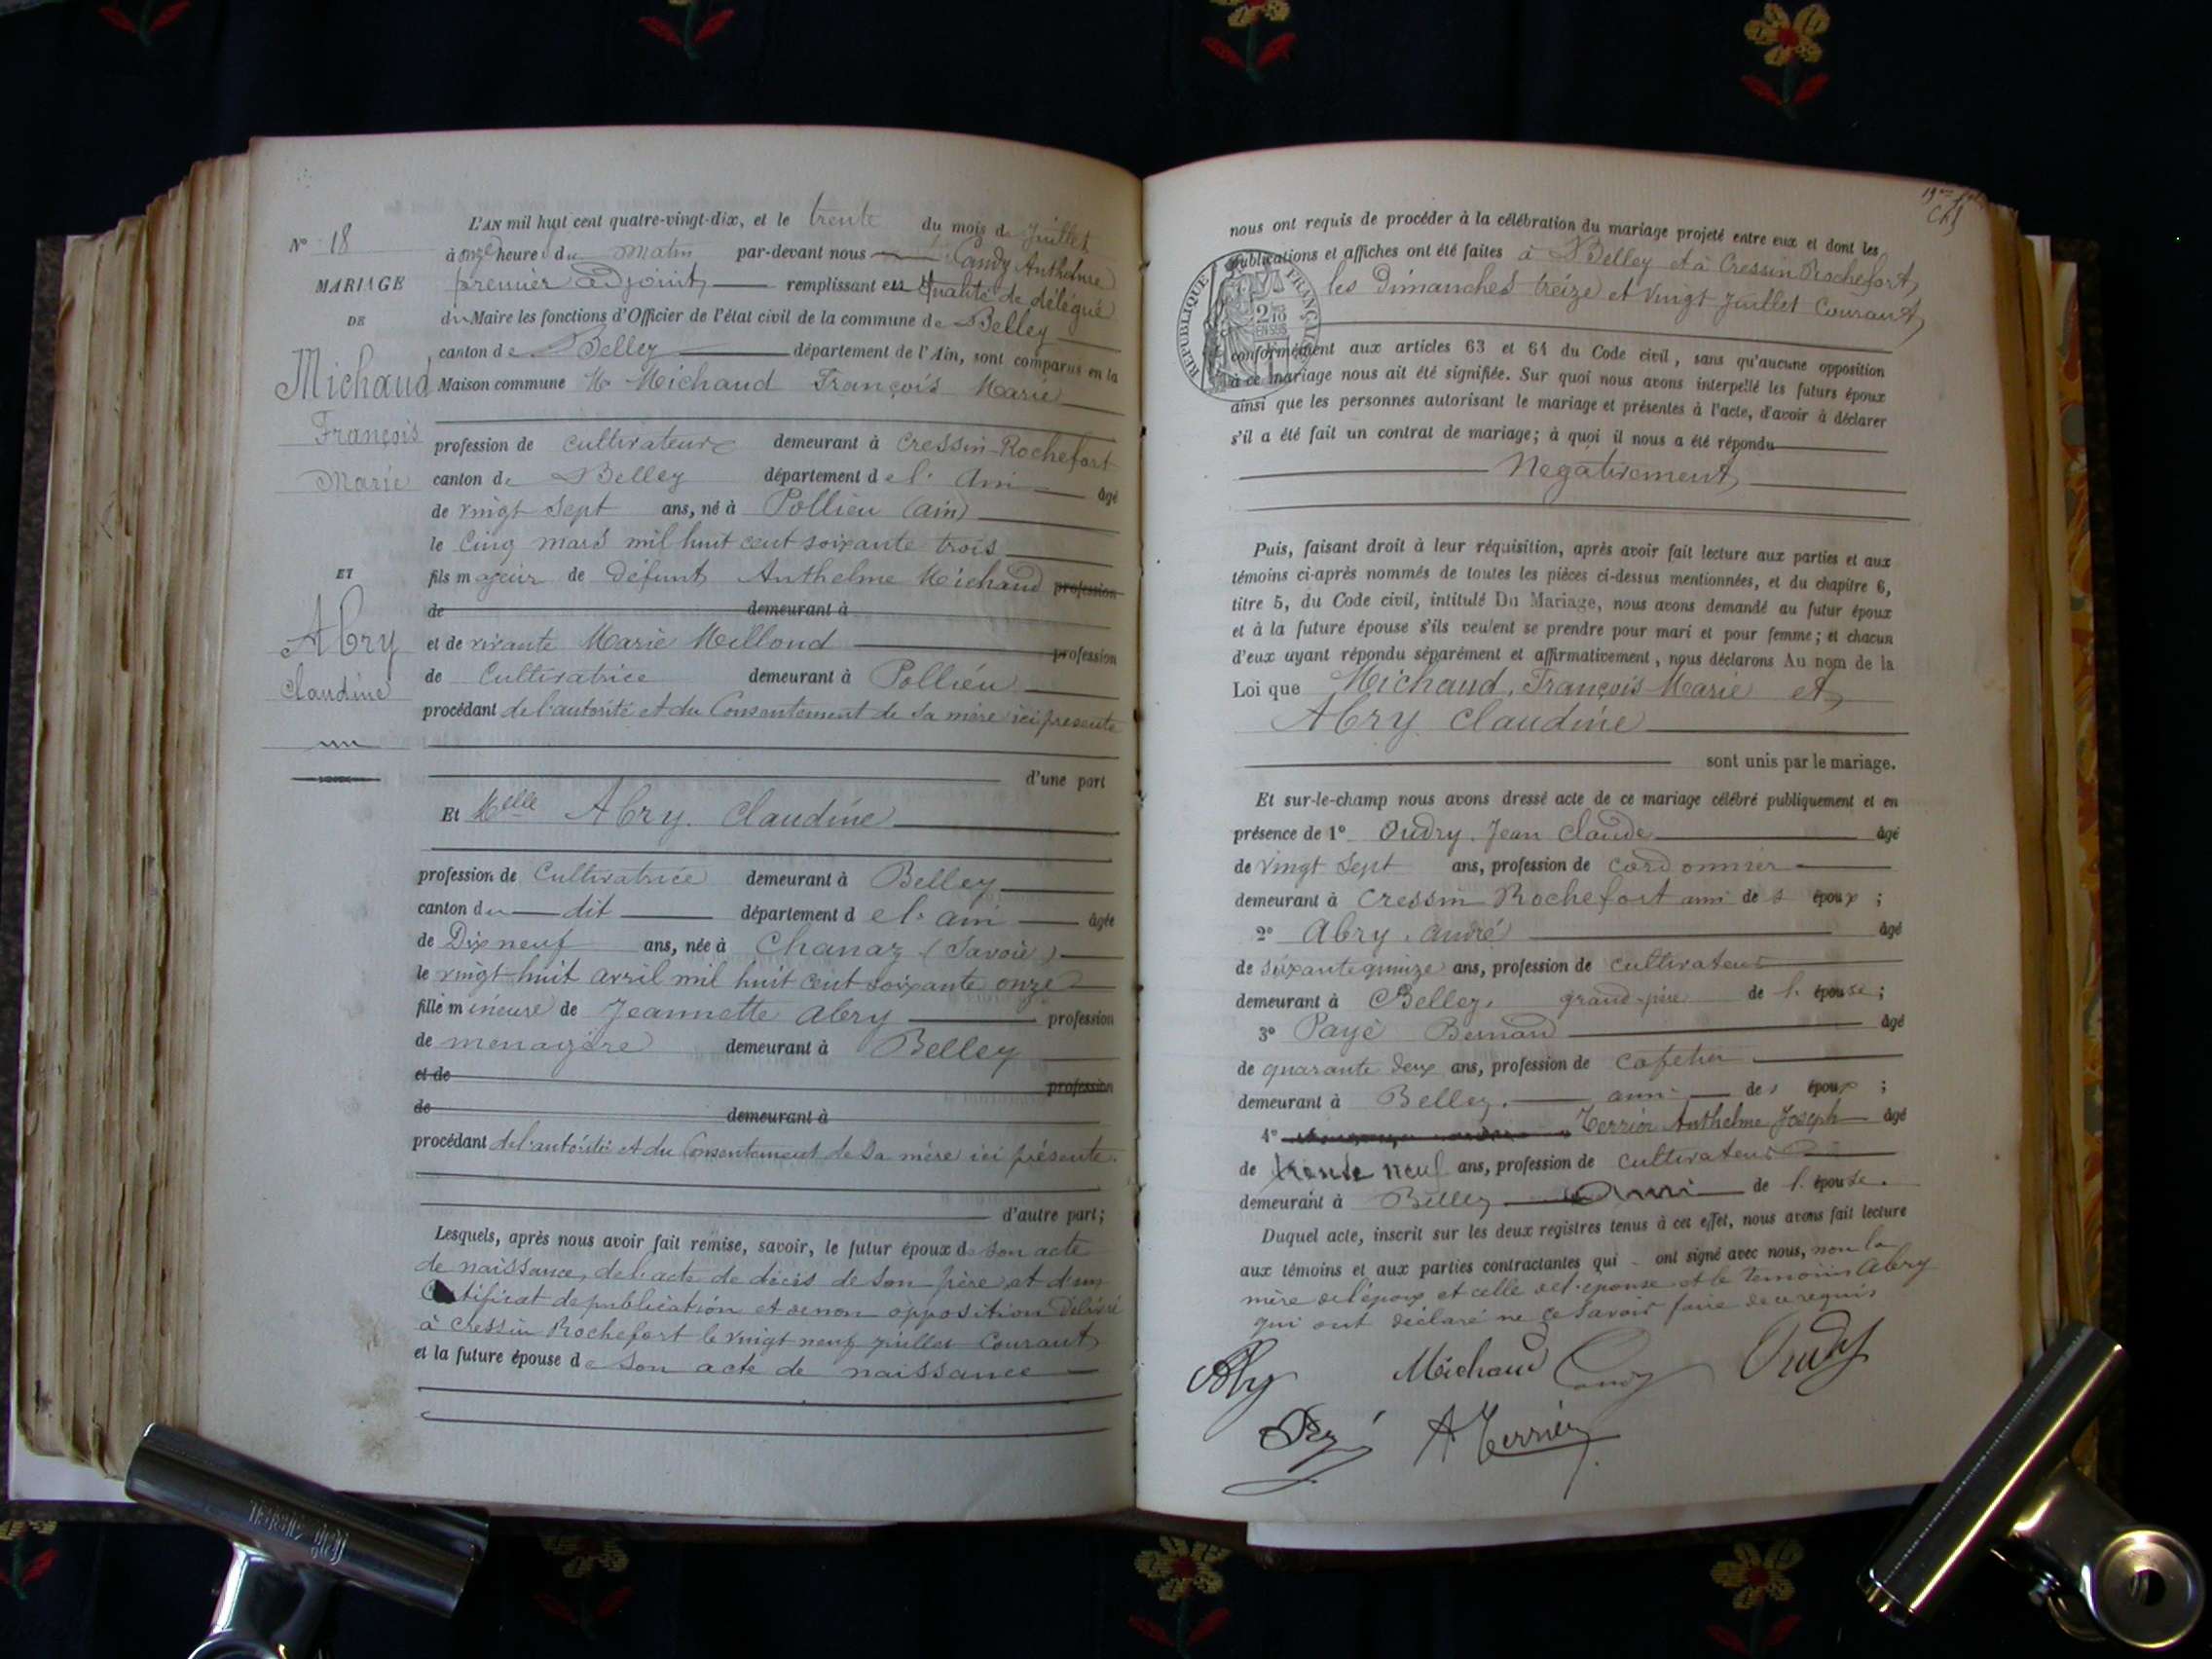 N° 18
MARIAGE
DE
Michaud
François
Marie
ET
Abry
Claudine
L'AN mil huit cent quatre-vingt-dix, et le trente du mois de Juillet
à onze heures du matin par-devant nous Candy Anthelme
premier adjoint remplissant en qualité de délégué
du Maire les fonctions d'Officier de l'état civil de la commune de Belley
canton de Belley département de l'Ain, sont comparus en la
Maison commune Mr Michaud François Marie
profession de cultivateur demeurant à Cressin-Rochefort
canton de Belley département de l'Ain âgé
de vingt sept ans, né à Pollieu (ain)
le cinq mars mil huit cent soixante trois
fils majeur de défunt Anthelme Michaud profession
de demeurant à
et de vivante Marie Milloud profession
de Cultivatrice demeurant à Pollieu
procédant de l'autorité et du Consentement de sa mère ici présente
d'une part
Et Melle Abry Claudine
profession de Cultivatrice demeurant à Belley
canton du dit département de l'ain âgée
de Dix neuf ans, née à Chanaz (Savoie)
le vingt huit avril mil huit cent soixante onze
fille mineure de Jeannette Abry profession
de ménagère demeurant à Belley
et de profession
de demeurant à
procédant de l'autorité et du Consentement de sa mère ici présente.
d'autre part;
Lesquels, après nous avoir fait remise, savoir, le futur époux de son acte
de naissance, de l'acte de décès de son père et d'un
Certificat de publication et de non opposition délivré
à Cressin Rochefort le vingt neuf juillet Courant
et la future épouse de son acte de naissance
nous ont requis de procéder à la célébration du mariage projeté entre eux et dont les
publications et affiches ont été faites à Belley et à Cressin Rochefort,
les Dimanches treize et vingt Juillet Courant,
RÉPUBLIQUE FRANÇAISE
2/10 EN SUS
conformément aux articles 63 et 64 du Code civil, sans qu'aucune opposition
à ce mariage nous ait été signifiée. Sur quoi nous avons interpellé les futurs époux
ainsi que les personnes autorisant le mariage et présentes à l'acte, d'avoir à déclarer
s'il a été fait un contrat de mariage; à quoi il nous a été répondu
Négativement
Puis, faisant droit à leur réquisition, après avoir fait lecture aux parties et aux
témoins ci-après nommés de toutes les pièces ci-dessus mentionnées, et du chapitre 6,
titre 5, du Code civil, intitulé Du Mariage, nous avons demandé au futur époux
et à la future épouse s'ils veulent se prendre pour mari et pour femme; et chacun
d'eux ayant répondu séparément et affirmativement, nous déclarons Au nom de la
Loi que Michaud, François Marie et
Abry Claudine
sont unis par le mariage.
Et sur-le-champ nous avons dressé acte de ce mariage célébré publiquement et en
présence de 1° Oudry, Jean Claude âgé
de vingt sept ans, profession de cordonnier
demeurant à Cressin Rochefort ami des époux;
2° Abry, André âgé
de soixante quinze ans, profession de cultivateur
demeurant à Belley, grand-père de l'épouse;
3° Payé Bernard âgé
de quarante deux ans, profession de cafetier
demeurant à Belley, ami des époux;
4° Terrier Anthelme Joseph âgé
de trente neuf ans, profession de cultivateur
demeurant à Belley ami de l'épouse.
Duquel acte, inscrit sur les deux registres tenus à cet effet, nous avons fait lecture
aux témoins et aux parties contractantes qui ont signé avec nous, non la
mère de l'époux et celle de l'épouse et le témoin Abry
qui ont déclaré ne le savoir faire de ce requis
Abry Michaud Candy Oudry
A Terrier